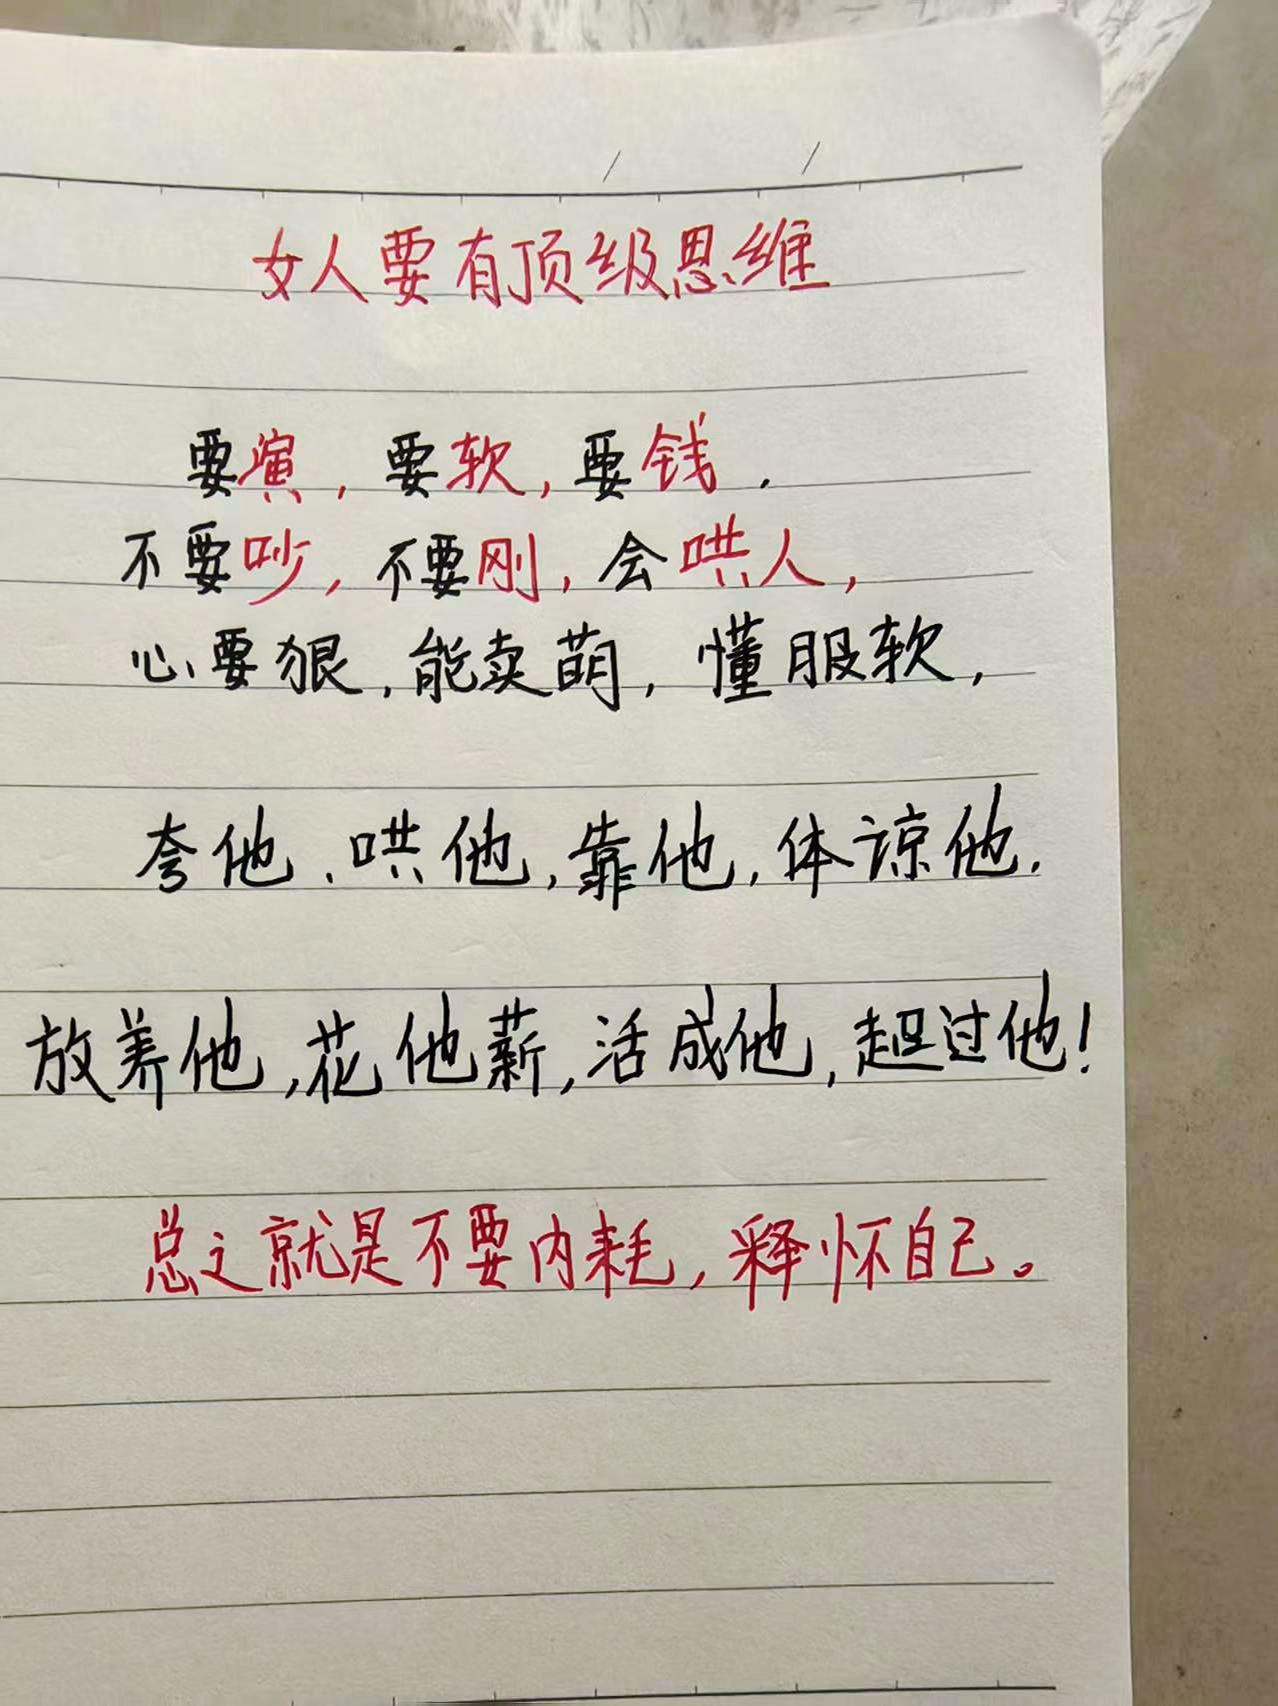 女人要有顶级思维
要演，要软，要钱．
不要吵，不要刚，会哄人，
心要狠，能卖萌，懂服软，
夸他、哄他，靠他，体谅他．
放养他，花他薪，活成他，超过他！
总之就是不要内耗，释怀自己。